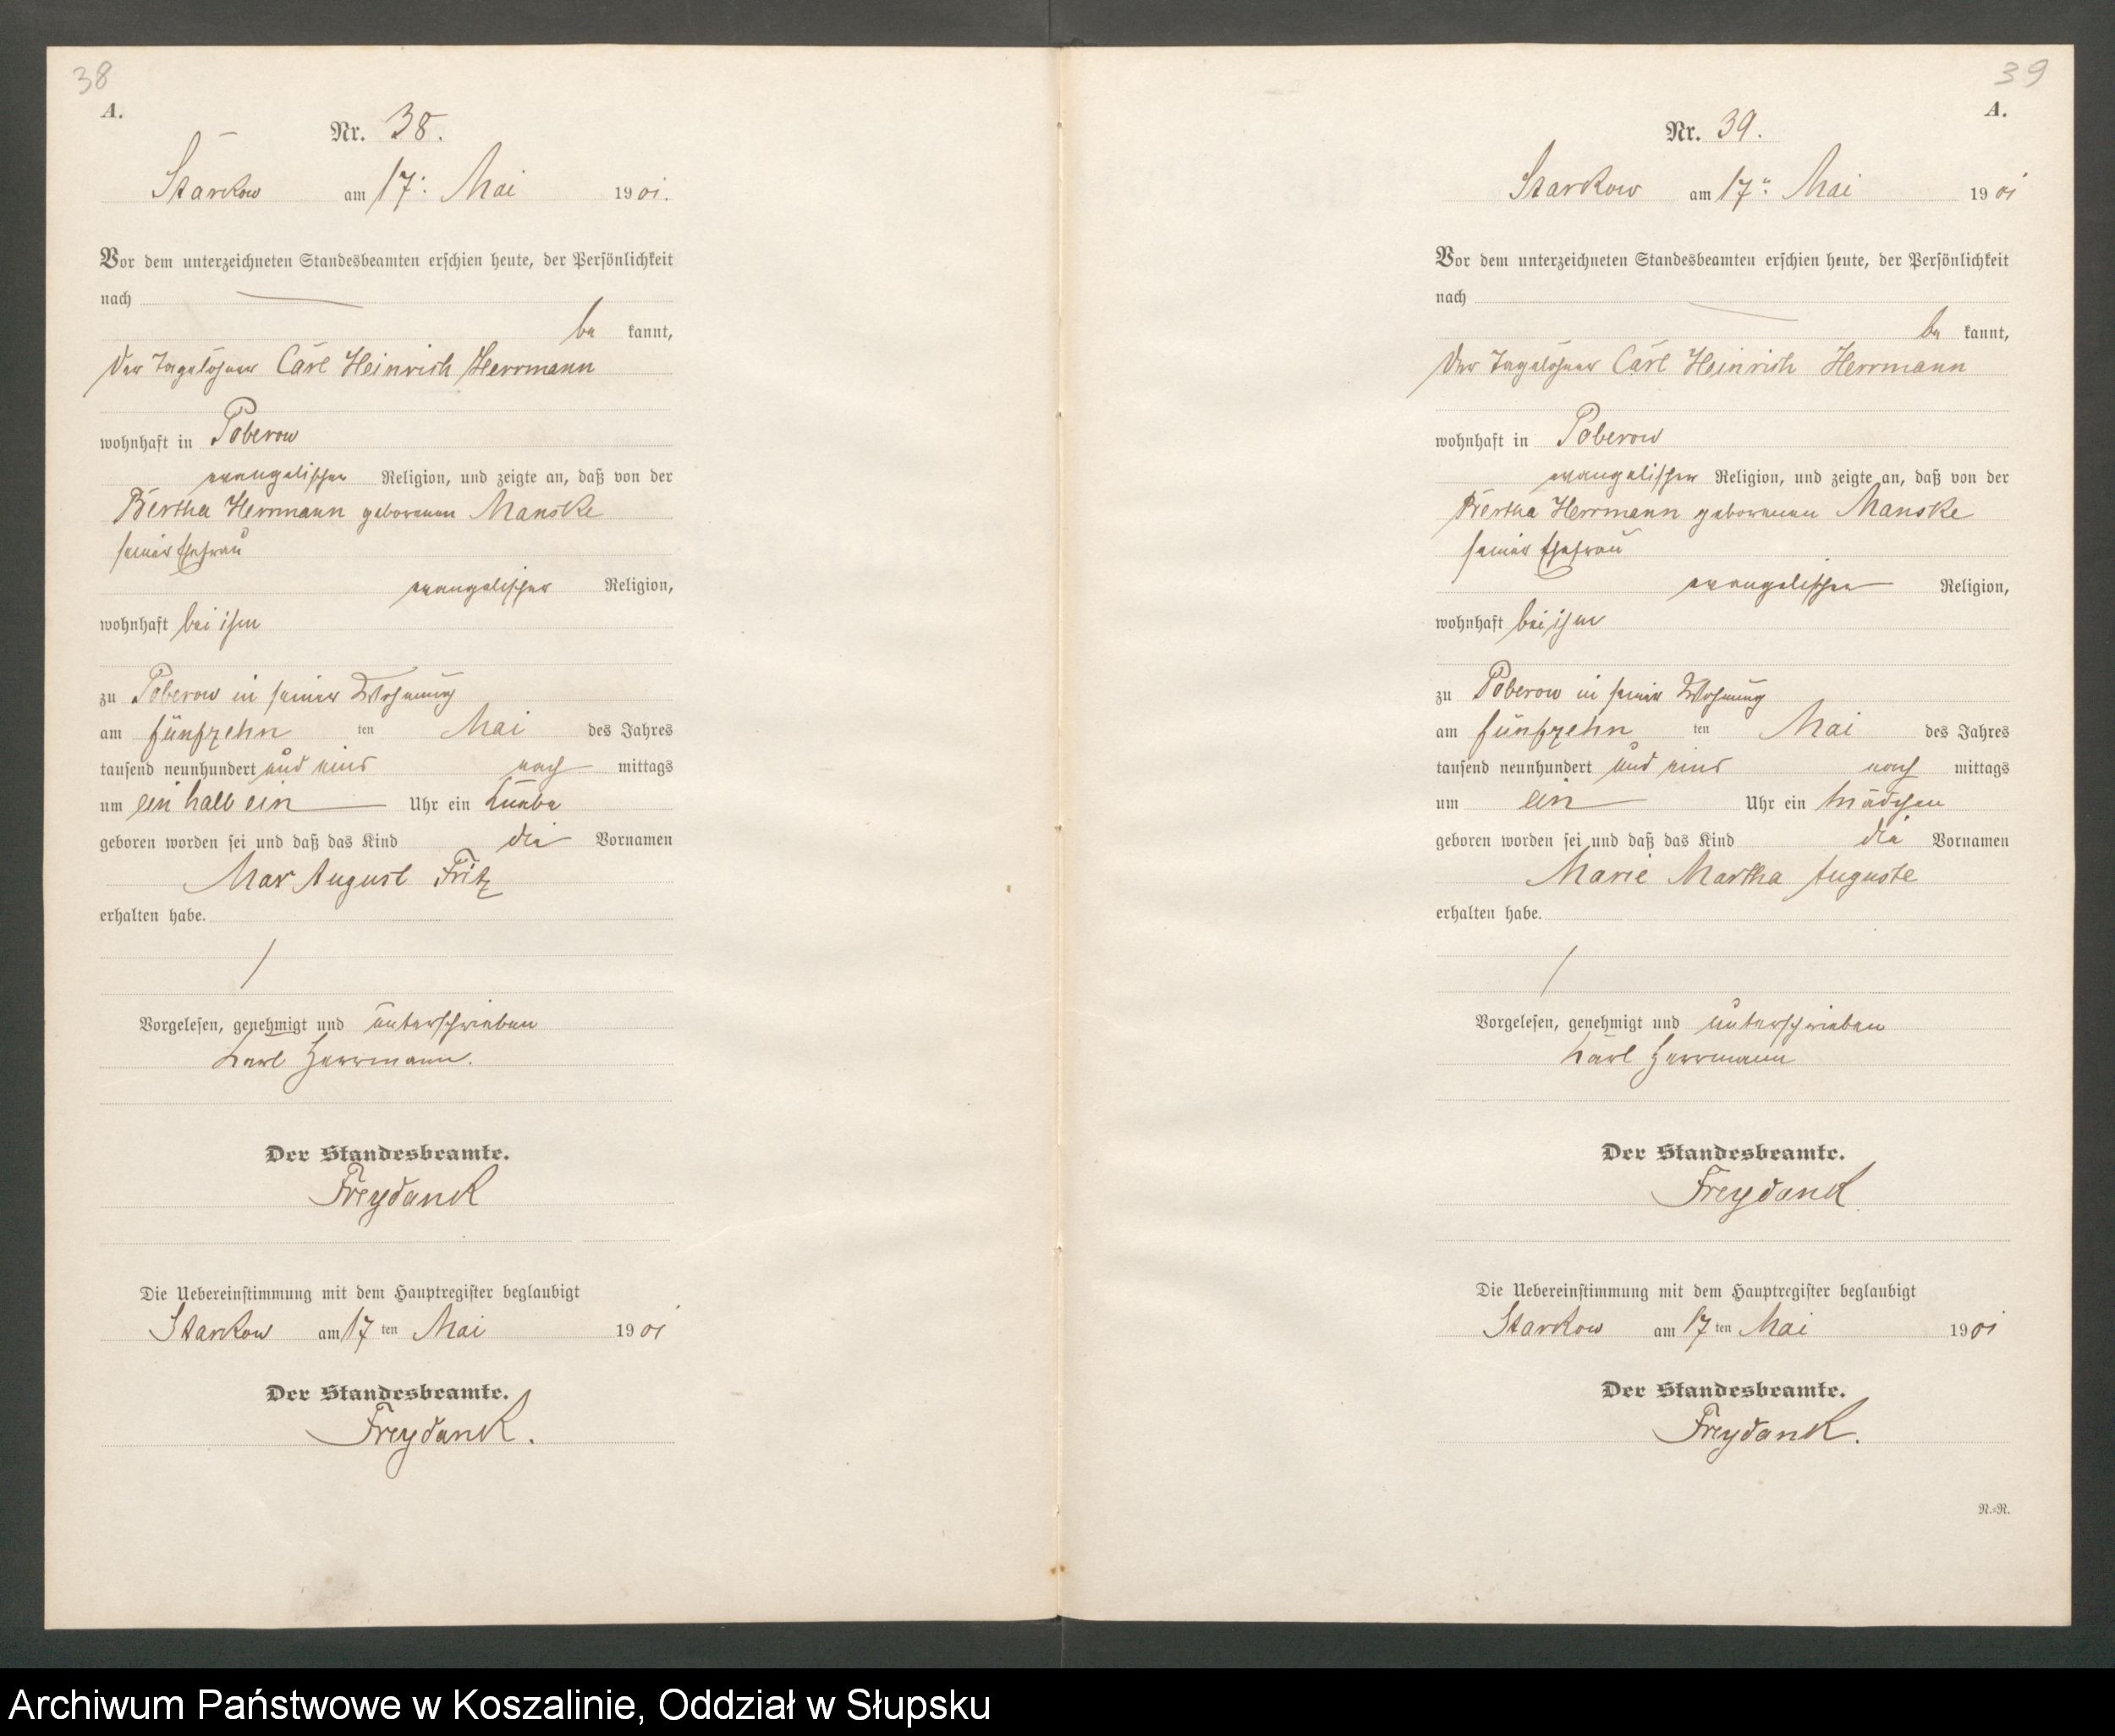 38
A.
Nr. 38.
Starkow am 17. Mai 1901.
Vor dem unterzeichneten Standesbeamten erschien heute, der Persönlichkeit
nach
be kannt,
der Tagelöhner Carl Heinrich Herrmann
wohnhaft in Poberow
evangelischer Religion, und zeigte an, daß von der
Bertha Herrmann geborenen Manske
seiner Ehefrau
evangelischer Religion,
wohnhaft bei ihm
zu Poberow in seiner Wohnung
am fünfzehn ten Mai des Jahres
tausend neunhundert und eins nach mittags
um ein halb ein Uhr ein Knabe
geboren worden sei und daß das Kind die Vornamen
Max August Fritz
erhalten habe.
Vorgelesen, genehmigt und unterschrieben
Karl Herrmann.
Der Standesbeamte.
Freydank
Die Uebereinstimmung mit dem Hauptregister beglaubigt
Starkow am 17 ten Mai 1901
Der Standesbeamte.
Freydank.
39
A.
Nr. 39.
Starkow am 17. Mai 1901
Vor dem unterzeichneten Standesbeamten erschien heute, der Persönlichkeit
nach
be kannt,
der Tagelöhner Carl Heinrich Herrmann
wohnhaft in Poberow
evangelischer Religion, und zeigte an, daß von der
Bertha Herrmann geborenen Manske
seiner Ehefrau
evangelischer Religion,
wohnhaft bei ihm
zu Poberow in seiner Wohnung
am fünfzehn ten Mai des Jahres
tausend neunhundert und eins nach mittags
um ein Uhr ein Mädchen
geboren worden sei und daß das Kind die Vornamen
Marie Martha Auguste
erhalten habe.
Vorgelesen, genehmigt und unterschrieben
Karl Herrmann
Der Standesbeamte.
Freydank
Die Uebereinstimmung mit dem Hauptregister beglaubigt
Starkow am 17 ten Mai 1901
Der Standesbeamte.
Freydank.
R.=R.
Archiwum Państwowe w Koszalinie, Oddział w Słupsku